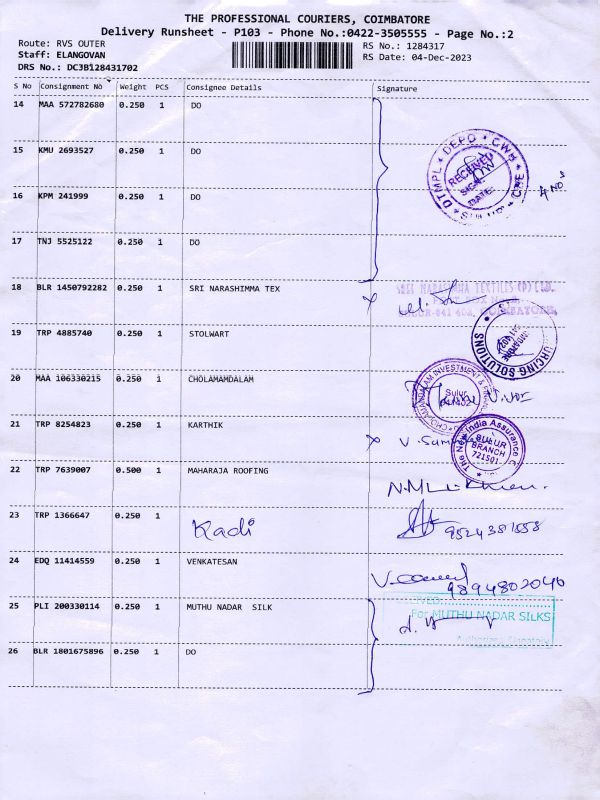 THE PROFESSIONAL COURIERS, COIMBATORE
Delivery Runsheet - P103 - Phone No.:0422-3505555 - Page No.:2
Route: RVS OUTER
RS No.: 1284317
Staff: ELANGOVAN
RS Date: 04-Dec-2023
DRS No.: DC3B128431702
S No Consignment No Weight PCS Consignee Details Signature
14 MAA 572782680 0.250 1 DO
DTMPL DEPO CWH
RECEIVED
SIGN.
DATE:
15 KMU 2693527 0.250 1 DO
16 KPM 241999 0.250 1 DO
17 TNJ 5525122 0.250 1 DO
18 BLR 1450792282 0.250 1 SRI NARASHIMMA TEX
19 TRP 4885740 0.250 1 STOLWART
SOLUTIONS
20 MAA 106330215 0.250 1 CHOLAMAMDALAM
INVESTMENT &
Sulur
21 TRP 8254823 0.250 1 KARTHIK
The New India Assurance
SULUR
BRANCH
721501
22 TRP 7639007 0.500 1 MAHARAJA ROOFING
23 TRP 1366647 0.250 1 Kadi
24 EDQ 11414559 0.250 1 VENKATESAN
9894802040
25 PLI 200330114 0.250 1 MUTHU NADAR SILK
For MUTHU NADAR SILKS
26 BLR 1801675896 0.250 1 DO